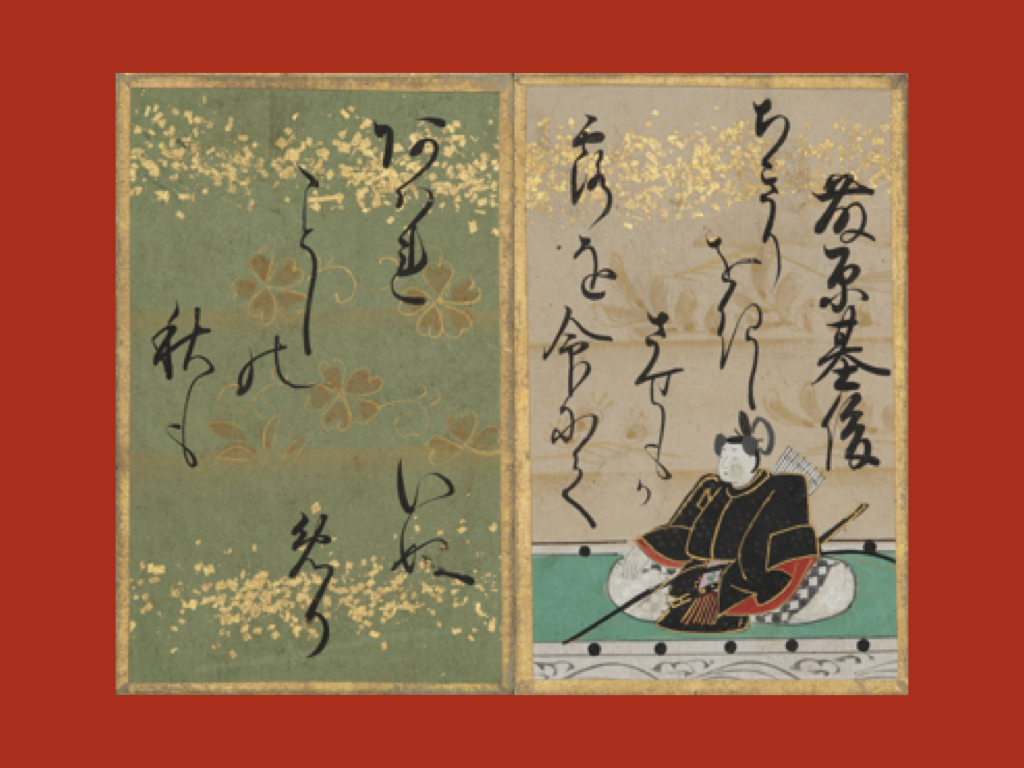 藤原基俊
ちきり
をきし
させもか
露を命にて
あはれ
ことし
の
秋も
いぬ
めり